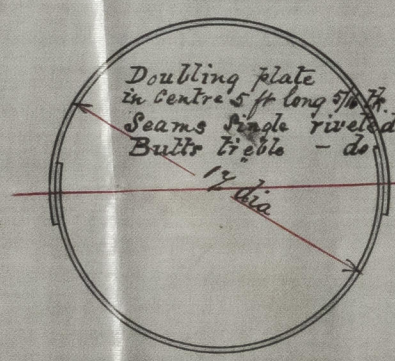 Doubling plate
in centre 5 ft long 5/16 tk.
Seams single riveted
Butts treble - do.
dia